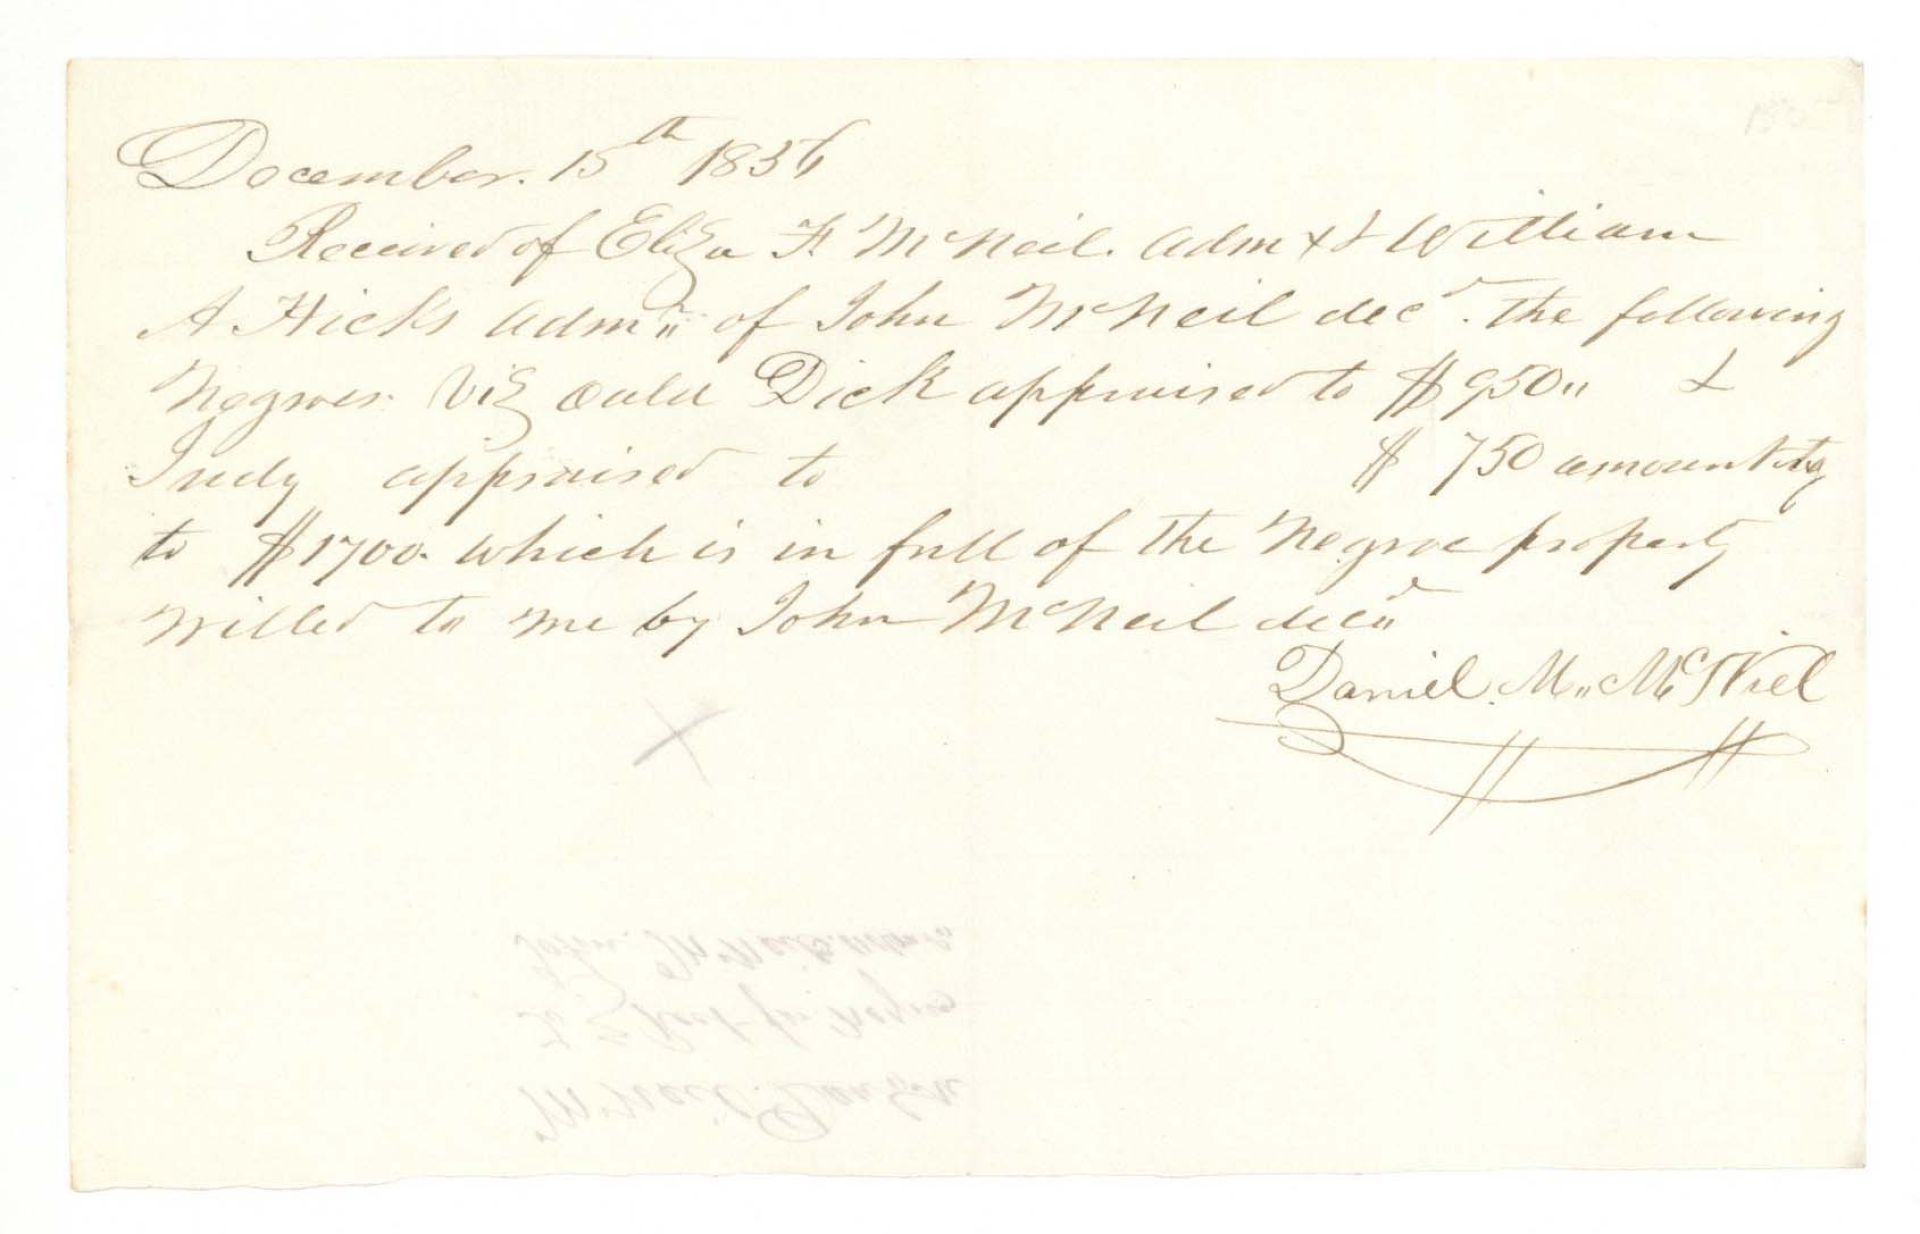 December. 15th 1836
Received of Eliza F. McNeil. Admx & William
A Hicks Admr of John McNeil decd. the following
Negroes. Viz Dick appraised to $950,, &
Judy appraised to $ 750 amounting
to $1700. which is in full of the Negroe property
Willed to me by John McNeil decd
Daniel. M,, McNiel